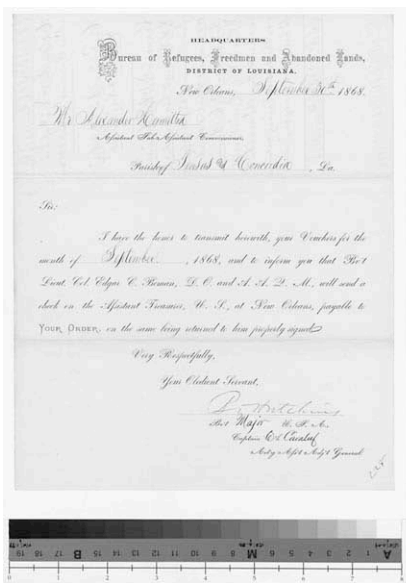 HEADQUARTERS
Bureau of Refugees, Freedmen and Abandoned Lands,
DISTRICT OF LOUISIANA,
New Orleans, September 30th 1868.
Mr Alexander Hamilton
Assistant Sub Assistant Commissioner,
Parish of Tensas & Concordia, La.
Sir:
I have the honor to transmit herewith, your Vouchers for the
month of September, 1868, and to inform you that Bv't
Lieut. Col. Edgar C. Beman, D. O. and A. A. Q. M., will send a
check on the Assistant Treasurer, U. S., at New Orleans, payable to
YOUR ORDER, on the same being returned to him properly signed
Very Respectfully,
Your Obedient Servant,
Hutchins
Bv't Major U. S. A.
Captain
Act'g Ass't Adj't General
19 18 17 16 15 B 14 13 12 11 10 9 8 M 7 6 5 4 3 2 1 A
0 1 2 3 4 5 6 7 8